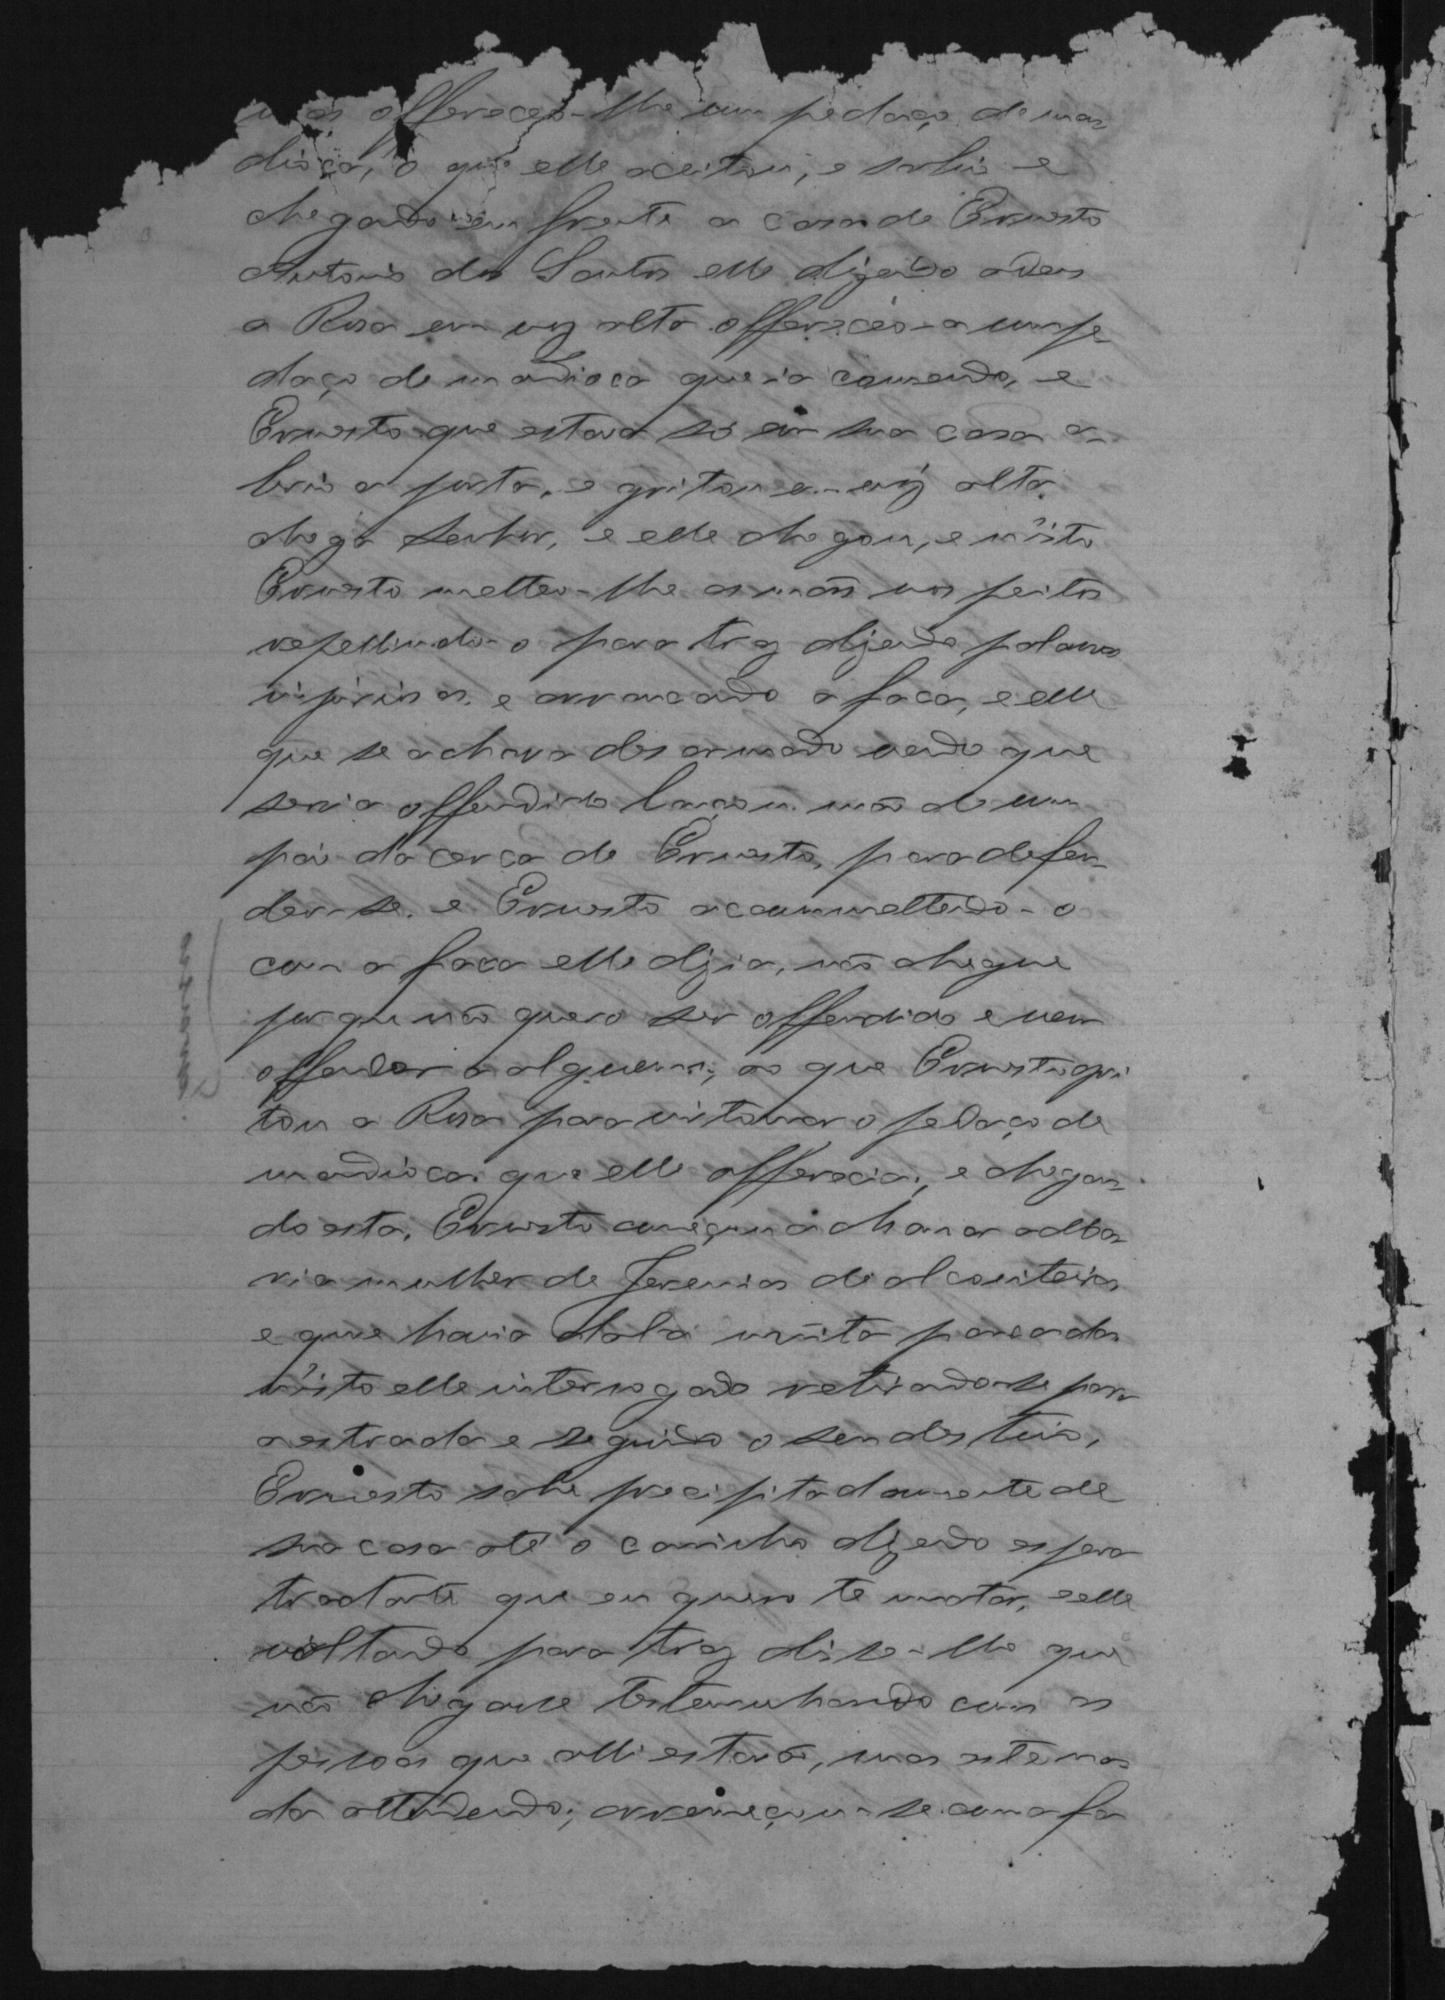 mas offereceo-lhe um pedaço de man
dioca, o que elle aceitou, e sahio e
chegando em frente a casa de Ernesto
Antonio dos Santos elle dizendo adeus
a Rosa em voz alta offereceo-a um pe
daço de mandioca que ia comendo, e
Ernesto que estava só em sua casa a-
brio a porta, e gritou em voz alta
chega senhor, e elle chegou, e n'isto
Ernesto metteo-lhe as mãos nos peitos
repellindo-o para traz dizendo palavras
injurias, e arrancando a faca, e elle
que se achava desarmado vendo que
seria offendido lançou mão de um
páo da cerca de Ernesto, para defen-
der-se, e Ernesto accommettendo-o
com a faca elle dizia, não chegue
porque não quero ser offendido e nem
offender a alguem; ao que Ernesto gri
tou a Rosa para vir tomar o pedaço de
mandioca que elle offerecia, e chegan-
do esta, Ernesto começou a chamar a
ria mulher de Jeremias de alcouteira
e que havia dado muita pancada
n'isto elle interrogado retirando-se para
a estrada e seguindo o seu destino,
Ernesto sahe precipitadamente de
sua casa até o caminho dizendo espera
tratante que eu quero te matar, e elle
voltando para traz disse-lhe que
não chegasse testemunhando com as
pessoas que alli estavão, mas este na
da attendendo; arremeçou-se com a fa